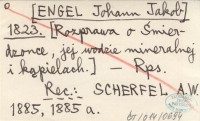 [ENGEL Johann Jakob]
1823. [Rozprawa o Śmier-
dzonce, jej wodzie mineralnej
i kąpielach.] — Rps.
Rec.: SCHERFEL A.W.
1885, 1885 a.